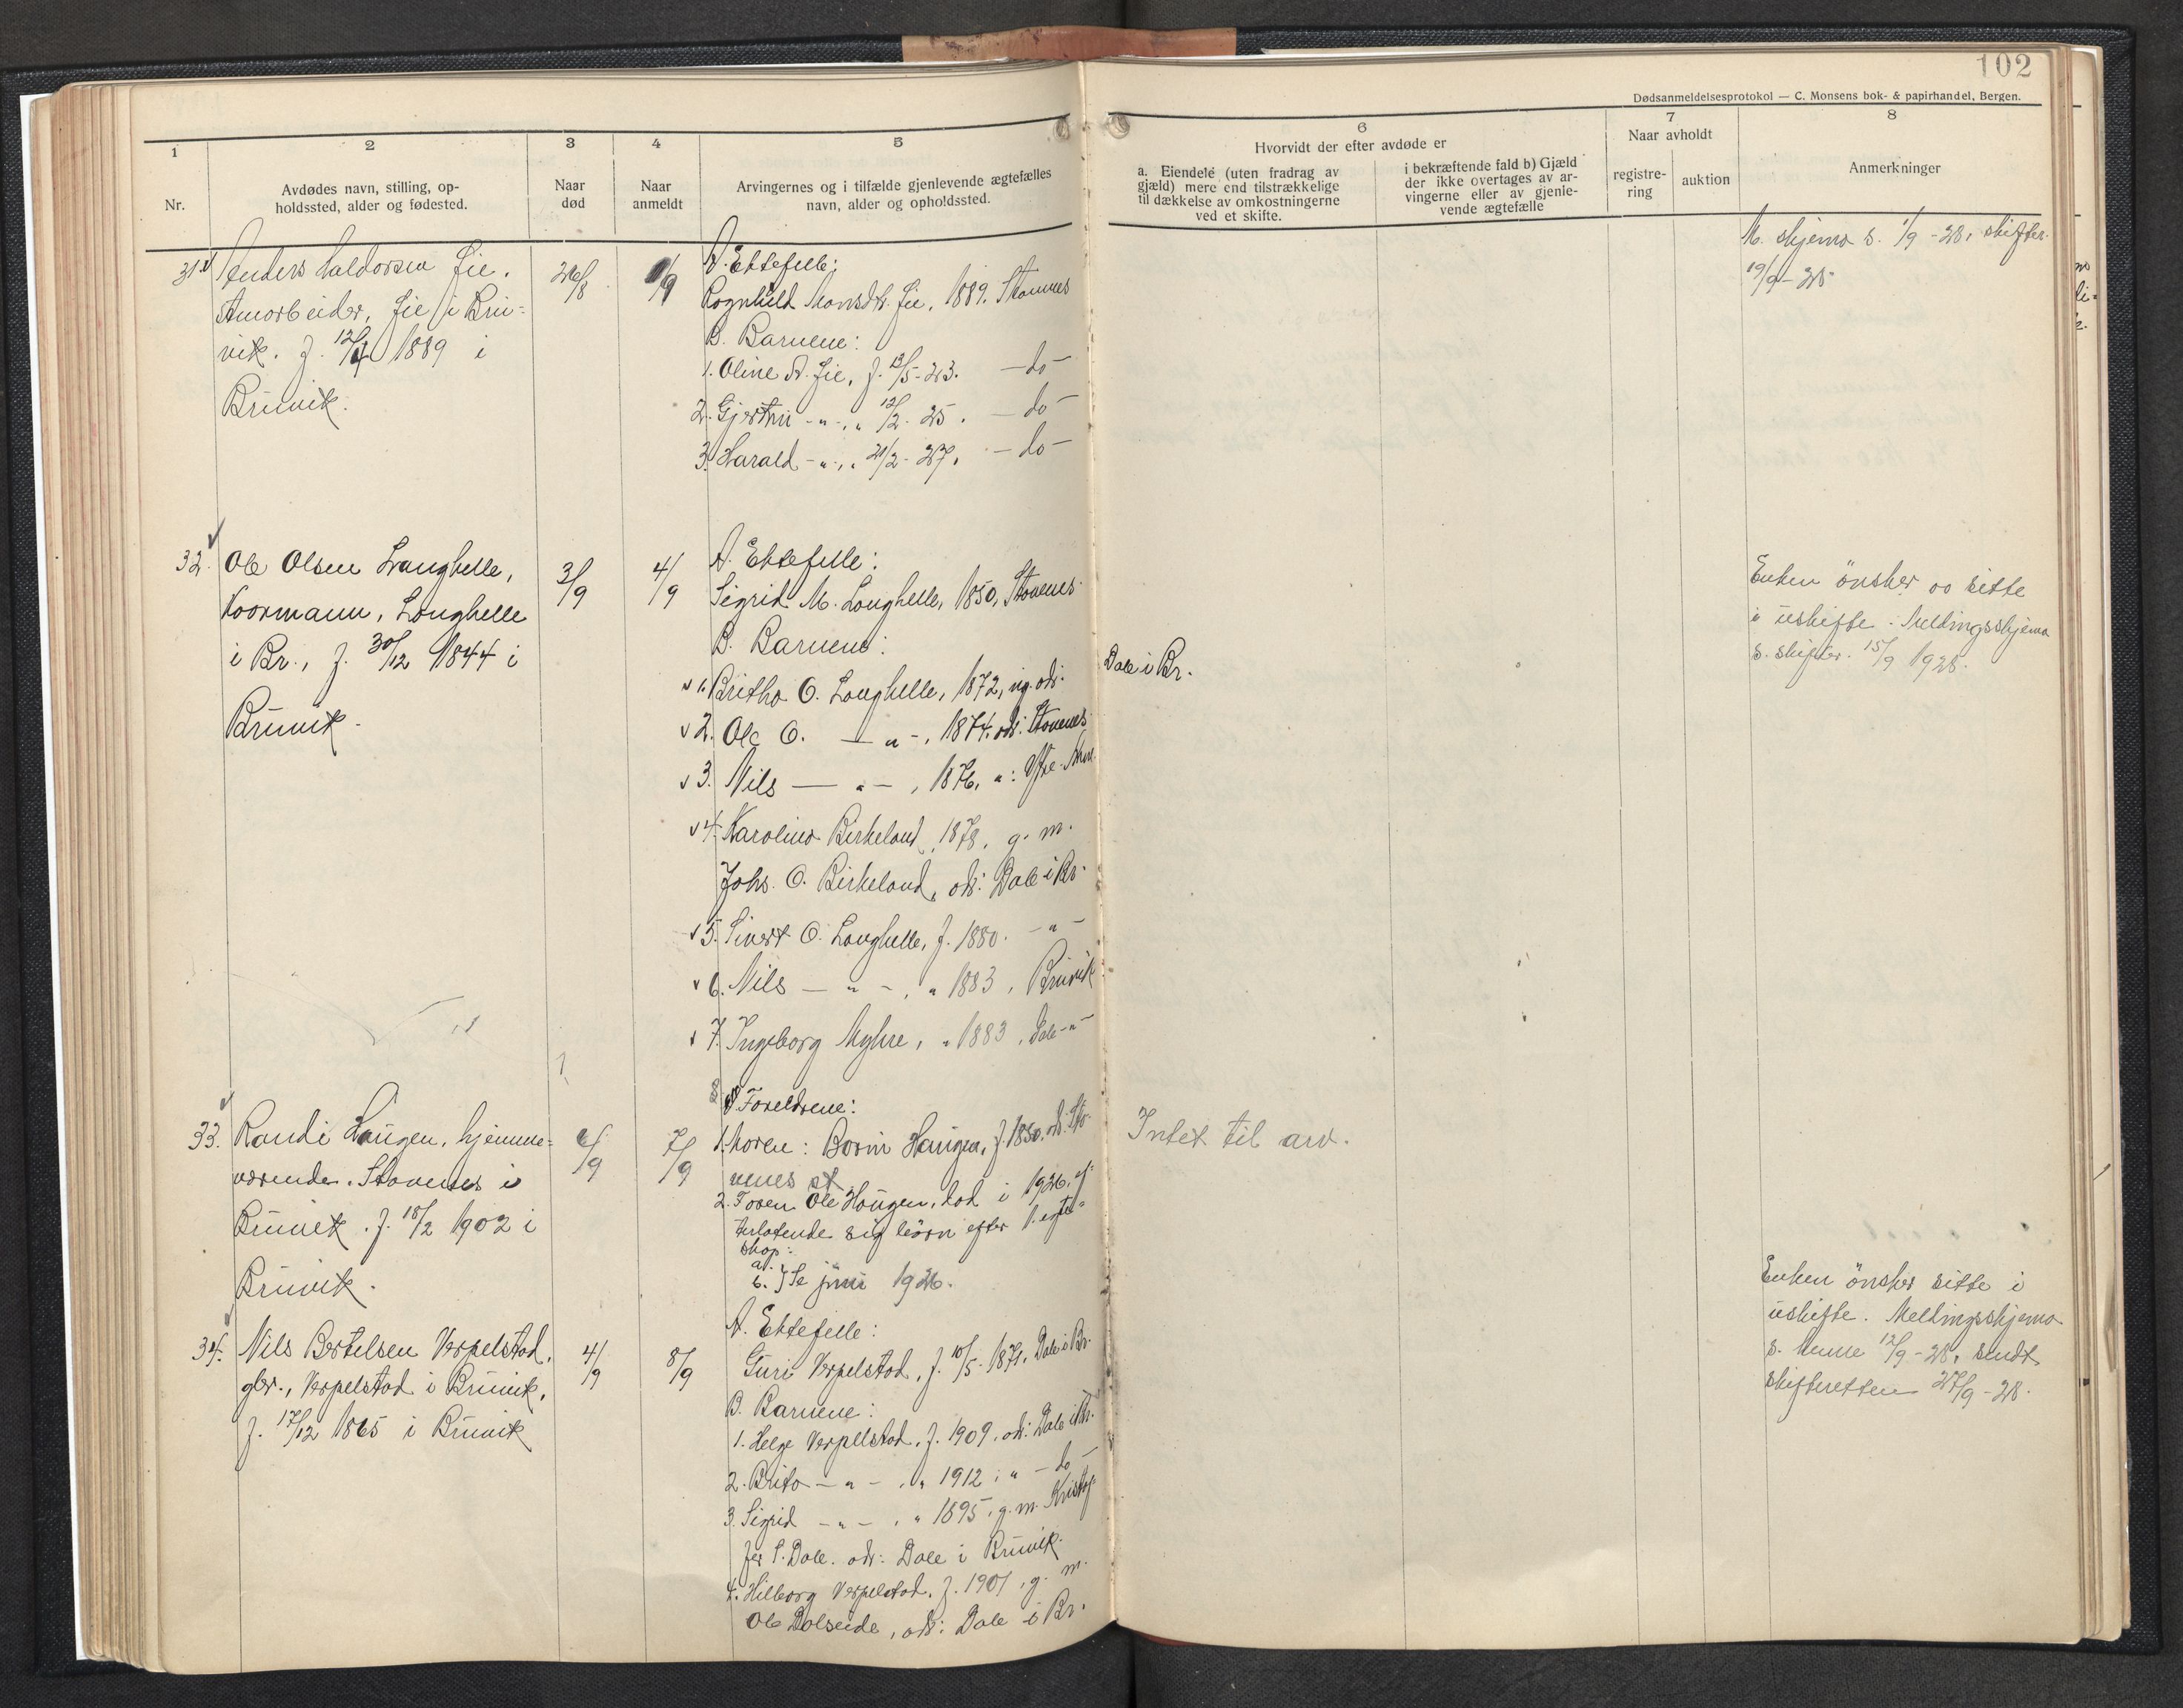 102
Dødsanmeldelsesprotokol — C. Monsens bok- & papirhandel, Bergen.
1
Nr.
2
Avdødes navn, stilling, op-
holdssted, alder og fødested.
3
Naar
død
4
Naar
anmeldt
5
Arvingernes og i tilfælde gjenlevende ægtefælles
navn, alder og opholdssted.
6
Hvorvidt der efter avdøde er
a. Eiendele (uten fradrag av
gjæld) mere end tilstrækkelige
til dækkelse av omkostningerne
ved et skifte.
i bekræftende fald b) Gjæld
der ikke overtages av ar-
vingerne eller av gjenle-
vende ægtefælle
7
Naar avholdt
registre-
ring
auktion
8
Anmerkninger
31. Anders Haldorsen Fie,
Fie i Bru-
vik. f. 1889 i
Bruvik.
26/8
A. Ektefelle:
Rognhild Monsdtr. Fie, 1889. Stamnes
B. Barnene:
1. Oline A. Fie, f. 12/5-23. — do —
2. Gjertru - " -, " 12/2-25. — do —
3. Harald - " -, " 21/2-27. — do —
M. skjema s. 1/9-28, skifter.
19/9-28
32. Ole Olsen Langhelle,
Langhelle
i Br., f. 30/12 1844 i
Bruvik.
3/9
4/9
A. Ektefelle:
Sigrid M. Langhelle, 1850, Stamnes
B. Barnene:
1. Britha O. Langhelle, 1872, ug. adr. Dale i Br.
2. Ole O. — " -, 1874. adr: Stamnes
3. Nils — " -, 1876, ":
4. Karolina Birkeland, 1878, g. m.
Johs. O. Birkeland, adr: Dale i Br.
5. Sivert O. Langhelle, f. 1880. - " -
6. Nils — " -, " 1883, Bruvik
7. Ingeborg Myhre, " 1883, Dale - " -
Enken ønsker aa sitte
i uskifte. Meldingsskjema
s. skifter. 15/9 1928.
33. Randi Haugen, hjemme-
værende. Stamnes i
Bruvik. f. 18/2 1902 i
Bruvik.
6/9
7/9
Foreldrene:
1. moren: Haugen, f. 1850. adr. Sta-
mnes
2. Faren Ole Haugen, død i 1926, ef-
terlatende sig børn efter 1. egte-
skap:
a.
b. juni 1926.
Intet til arv.
34. Nils Bertelsen Verpelstad,
gbr., Verpelstad i Bruvik,
f. 17/12 1865 i Bruvik
4/9
8/9
A. Ektefelle:
Guri Verpelstad, f. 10/5-1871, Dale i Br.
B. Barnene:
1. Helge Verpelstad, f. 1909, adr: Dale i Br.
2. Brita - " -, " 1912, " - do -
3. Sigrid - " -, " 1895, g. m. Kristof-
fer S. Dale. adr: Dale i Bruvik.
4. Hilborg Verpelstad, f. 1901, g. m.
Ole Dalseide, adr: Dale i Br.
Enken ønsker sitte i
uskifte. Meldingsskjema
s. 12/9-28, sendt
skifteretten 27/9-28.